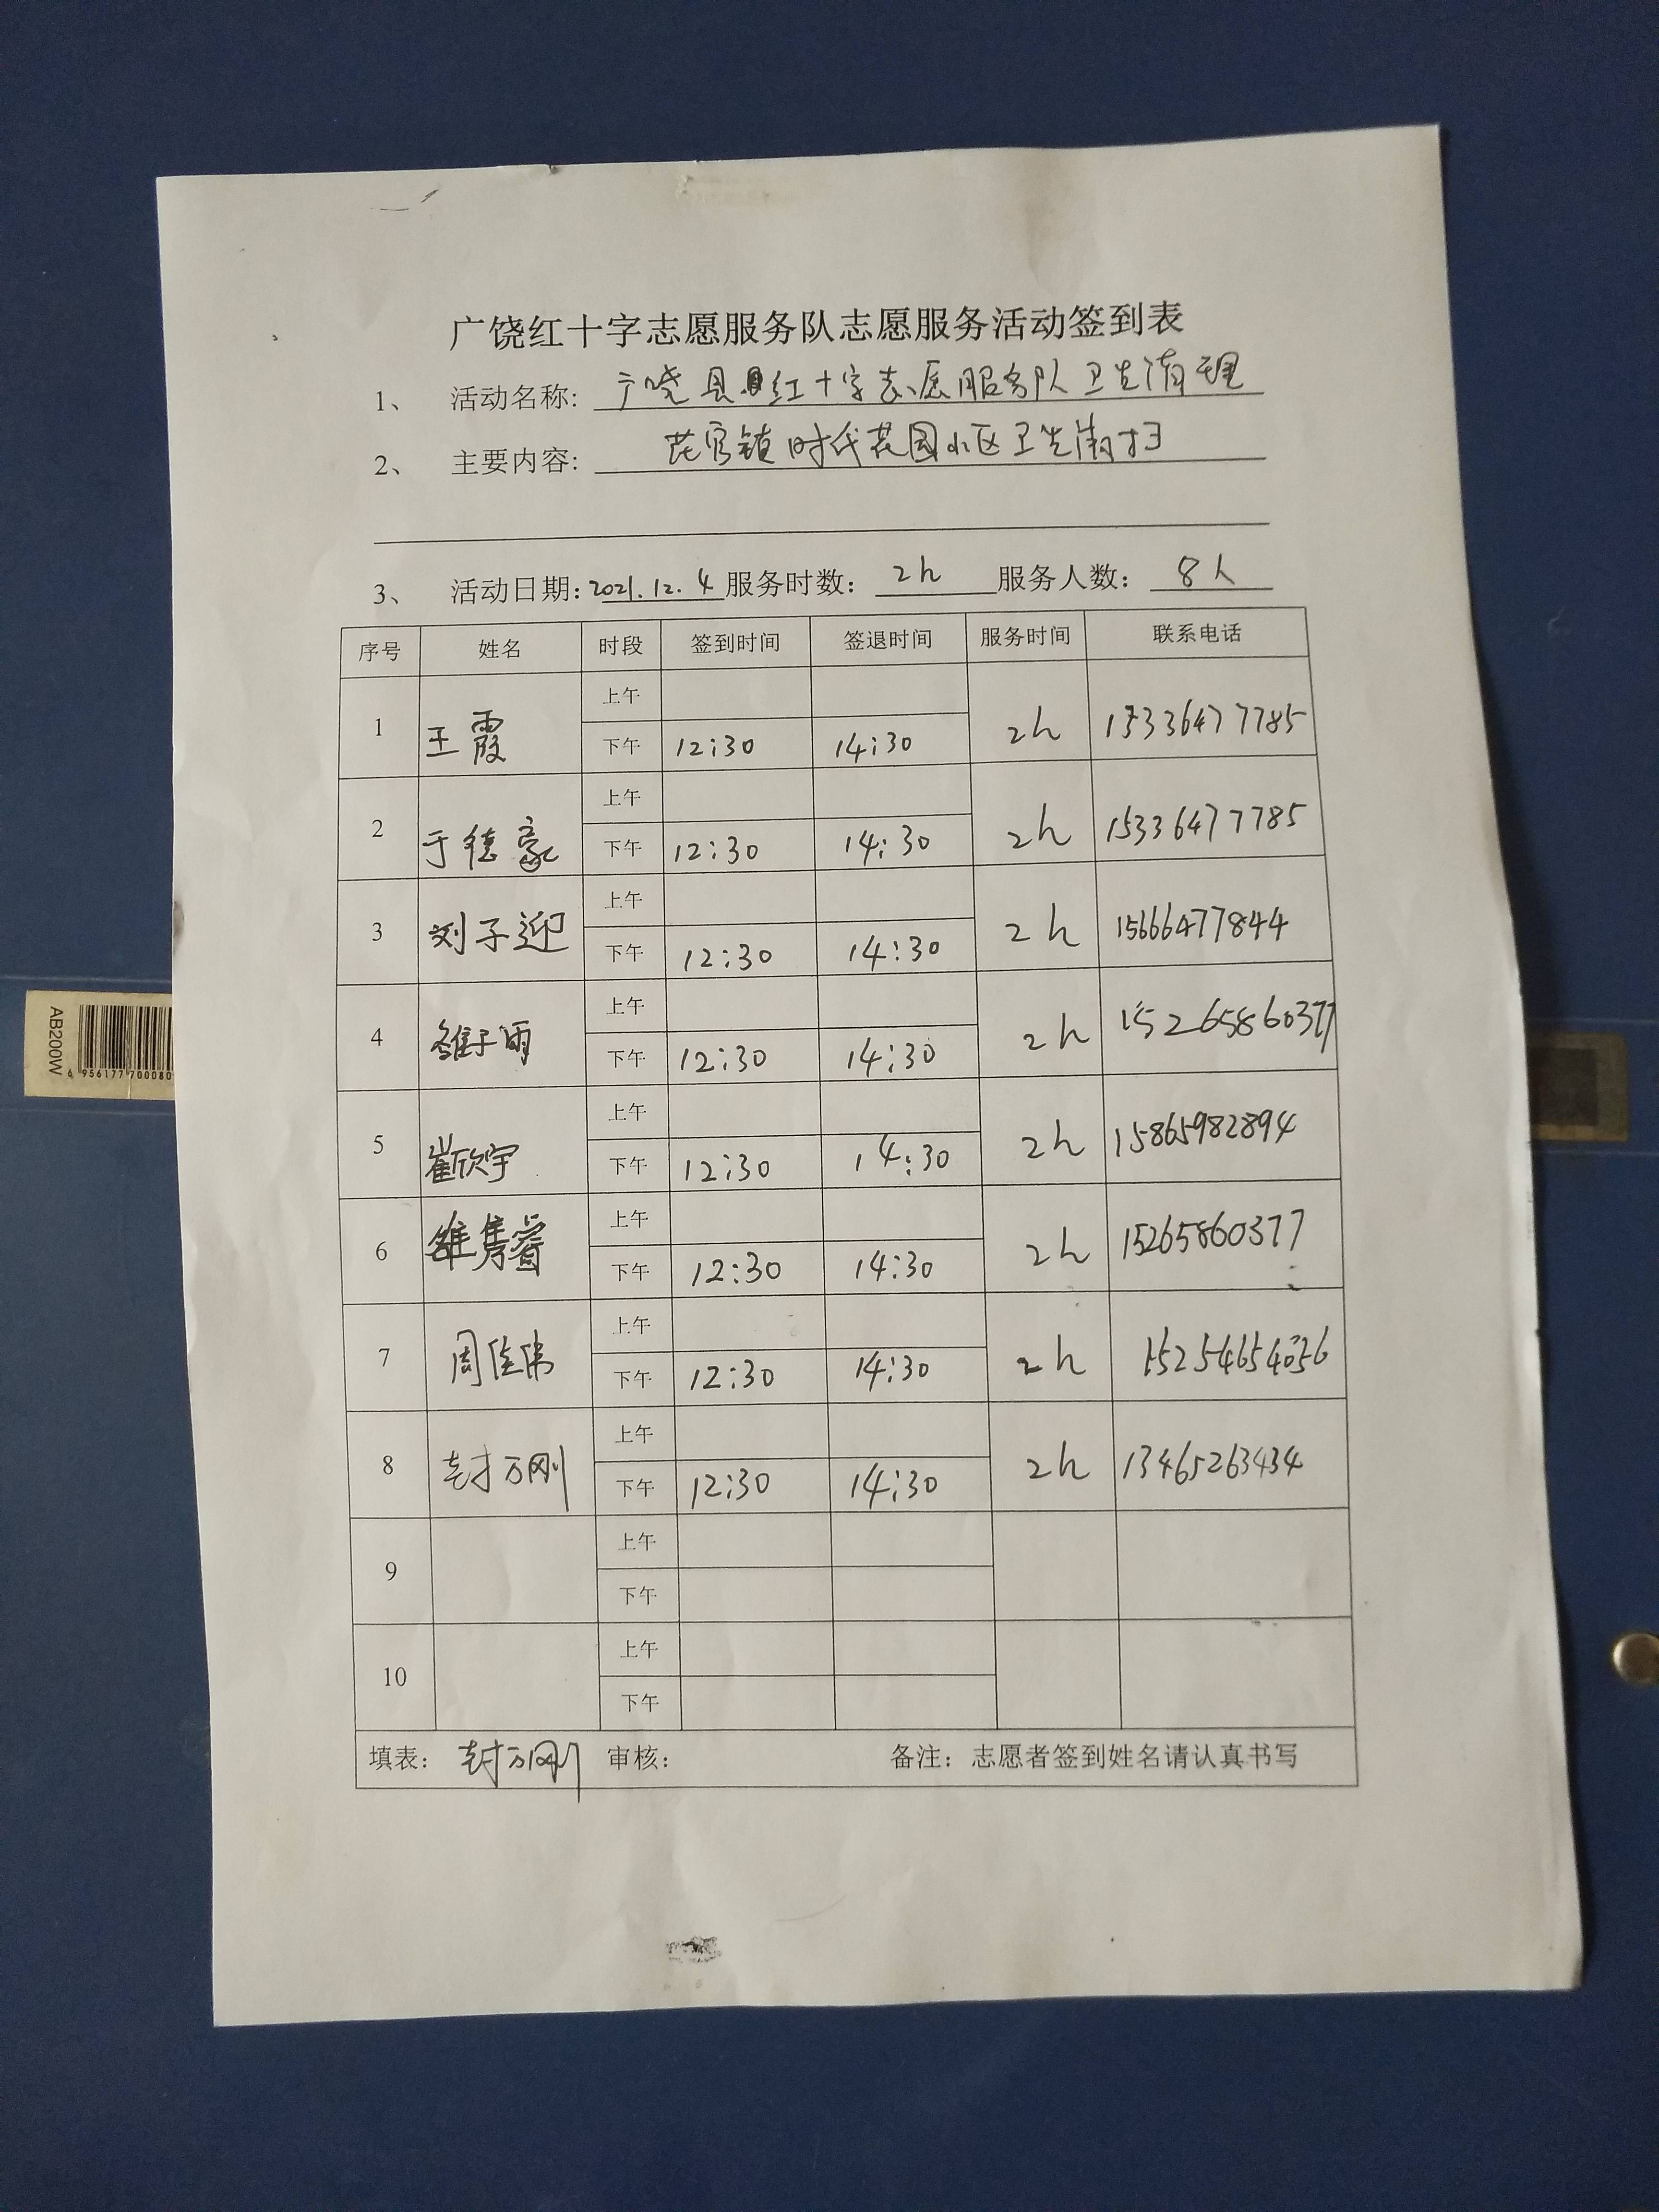 广饶红十字志愿服务队志愿服务活动签到表
1、 活动名称: 广饶县红十字志愿服务队卫生清理
2、 主要内容: 花官镇时代花园小区卫生清扫
3、 活动日期: 2021.12.4 服务时数: 2h 服务人数: 8人
序号 姓名 时段 签到时间 签退时间 服务时间 联系电话
上午
1 王霞 2h 15336477785
下午 12:30 14:30
上午
2 于德豪 2h 15336477785
下午 12:30 14:30
上午
3 刘子迎 2h 15666477844
下午 12:30 14:30
上午
4 雒子雨 2h 15265860377
下午 12:30 14:30
上午
5 崔欣宇 2h 15865982894
下午 12:30 14:30
上午
6 雒隽睿 2h 15265860377
下午 12:30 14:30
上午
7 周佳伟 2h
下午 12:30 14:30
上午
8 封万刚 2h 13465263434
下午 12:30 14:30
上午
9
下午
上午
10
下午
填表: 封万刚 审核: 备注: 志愿者签到姓名请认真书写
AB200W
6 956177 700080